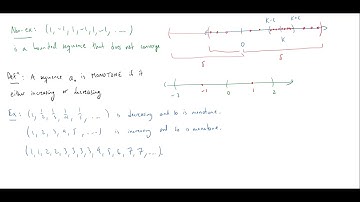 Non-ex: (1, -1, 1, -1, 1, -1, ....)
is a bounded sequence that does not converge
K-ε K+ε
0 K
5 5
Def^n: A sequence a_n is MONOTONE if it
either increasing or decreasing
-3 -1 0 1 2
Ex: (1, 1/2, 1/3, 1/4, 1/5, ....) is decreasing and so is monotone.
(1, 2, 3, 4, 5, ....) is increasing and so is monotone.
(1, 1, 2, 2, 3, 3, 3, 3, 4, 5, 6, 7, 7, ...)